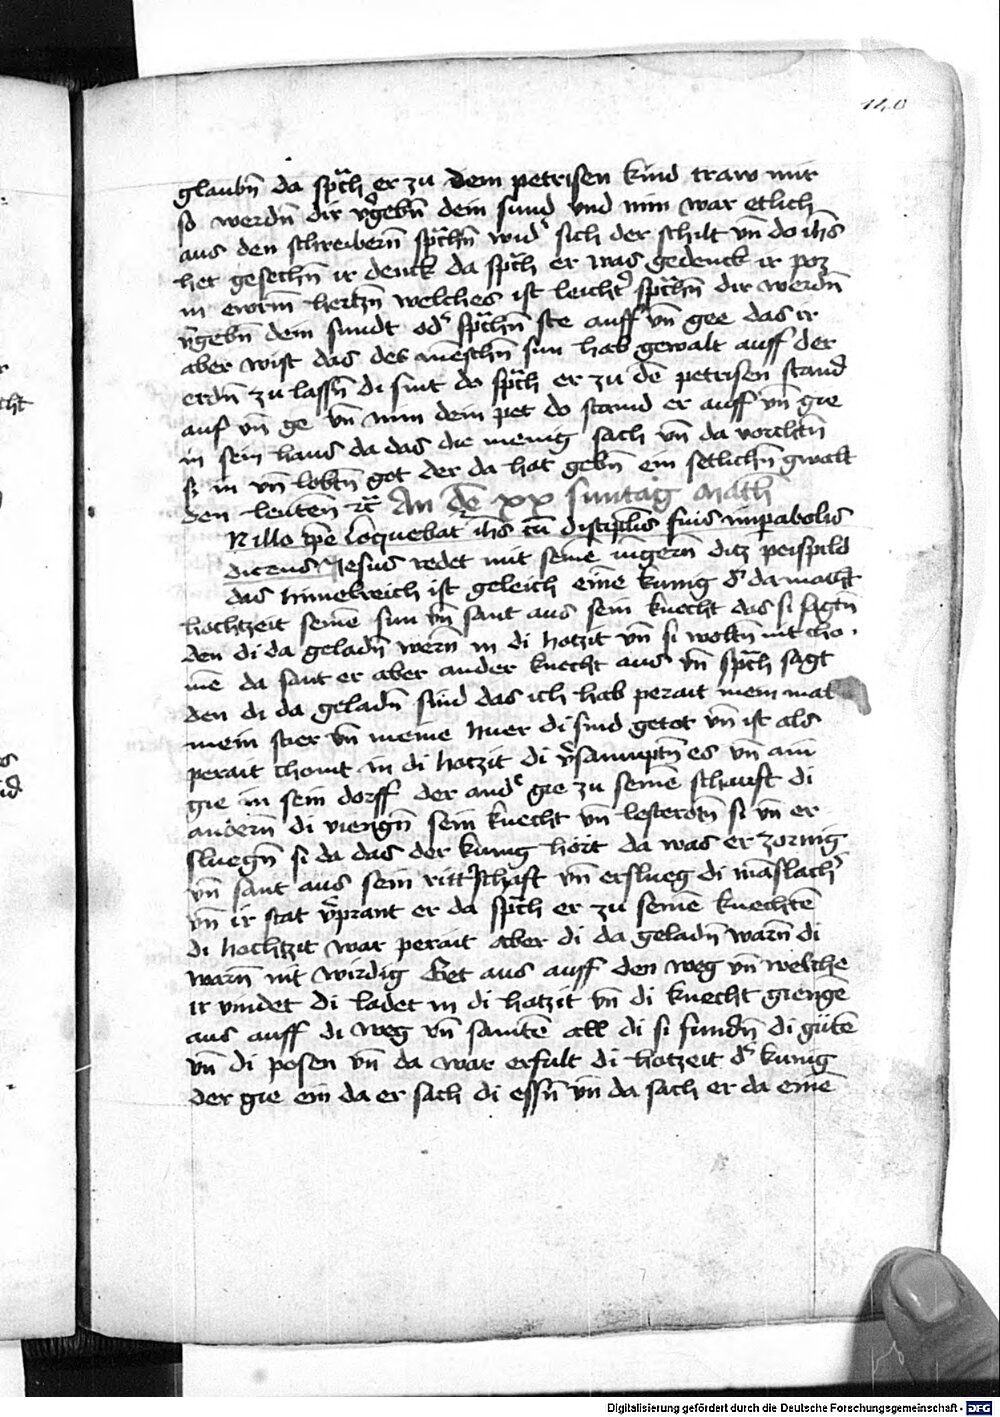 140
glaubn̄ da sp̄ch er zu dem petrisen kind traw mir
so werdn̄ dir v̓gebn̄ dein sund vnd nim war etlich
aus den schreibern̄ sp̄chn̄ wid̓ sich der schilt vn̄ do ih̄s
het gesechn̄ ir denck da sp̄ch er was gedenck ir poz
in ewrm̄ hertzn̄ welches ist leicht̓ sp̄chn̄ dir werdn̄
v̓gebn̄ dein sundt od̓ sp̄chn̄ ste auff vn̄ gee das ir
aber wist das des menschn̄ sun hab gewalt auff der
erdn̄ zu lassn̄ di sint do sp̄ch er zu de̅ petrisen stand
auf vn̄ ge vn̄ nim dein pet do stand er auff vn̄ gie
in sein haus da das die menig sach vn̄ da vorchtn̄
si in vn̄ lobtn̄ got der da hat gebn̄ ein setlichn̄ gwalt
den leuten̄ rc̄ An de̅ xx suntag Math̄
N illo tp̄e loquebat̓ ih̄s cu̅ discip̄lis suis in p̄abolis
dicens Jesus redet mit seine̅ iu̅gern̄ ditz peispild
das himelreich ist geleich eine̅ kunig d̓ da macht
hochtzeit seine̅ sun vn̄ sant aus sein knecht das si sagtn̄
den di da geladn̄ wern̄ in di hotzit vn̄ si woltn̄ nit cho
me̅ da sant er aber ander knecht aus vn̄ sp̄ch sagt
den di da geladn̄ sind das ich hab perait mein mal
mein stier vn̄ meine huer di sind getot vn̄ ist als
perait chomt in di hotzit di v̓saumptn̄ es vn̄ ain
gie in sein dorff der and̓ gie zu seine̅ schaufft di
andern̄ di viengn̄ sein knecht vn̄ lesterotn̄ si vn̄ er
sluegn̄ si da das der kunig hört da was er zornig
vn̄ sant aus sein ritt̓schaft vn̄ erslueg di ma̅slach̓
vn̄ ir stat v̓prant er da sp̄ch er zu seine̅ knechte̅
di hochtzit war perait aber di da geladn̄ warn̄ di
warn̄ nit wirdig Get aus auff den weg vn̄ welche
ir vindet di ladet in di hotzit vn̄ di knecht gienge̅
aus auff di weg vn̄ samte̅ all di si fundn̄ di güte̅
vn̄ di posen vn̄ da war erfult di hotzeit d̓ kunig
der gie ein da er sach di essn̄ vn̄ da sach er da eine̅
Digitalisierung gefördert durch die Deutsche Forschungsgemeinschaft - DFG